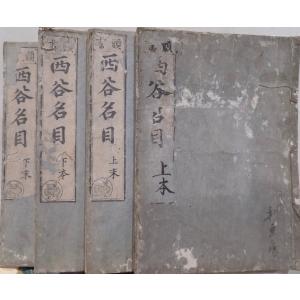 頭書
西谷名目
上本
頭書
西谷名目
上末
頭書
西谷名目
下本
西谷名目
下末